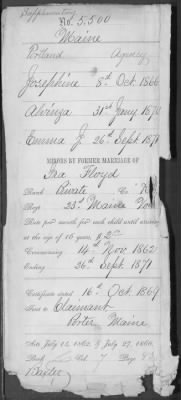 Supplementary
No. 5.500
Maine
Portland Agency
Josephine 8th Oct. 1866
Alvinza 31st Jany 1870
Emma J. 26th Sept. 1871
MINORS BY FORMER MARRIAGE OF
Ira Floyd
Rank Private Co.
Regt 23d Maine Vols
Rate per month for each child until arriving
at the age of 16 years, $2
Commencing 14th Nov. 1862
Ending 26th Sept. 1871
Certificate dated 16th Oct. 1869
Sent to Claimant
Porter Maine
Acts July 14, 1862, & July 27, 1868.
Book Vol. 7 Page
Baxter